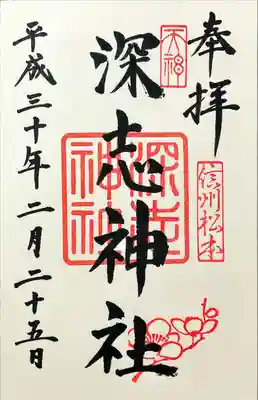 奉拝
信州松本
天神
深志神社
深志
神社
平成三十年二月二十五日